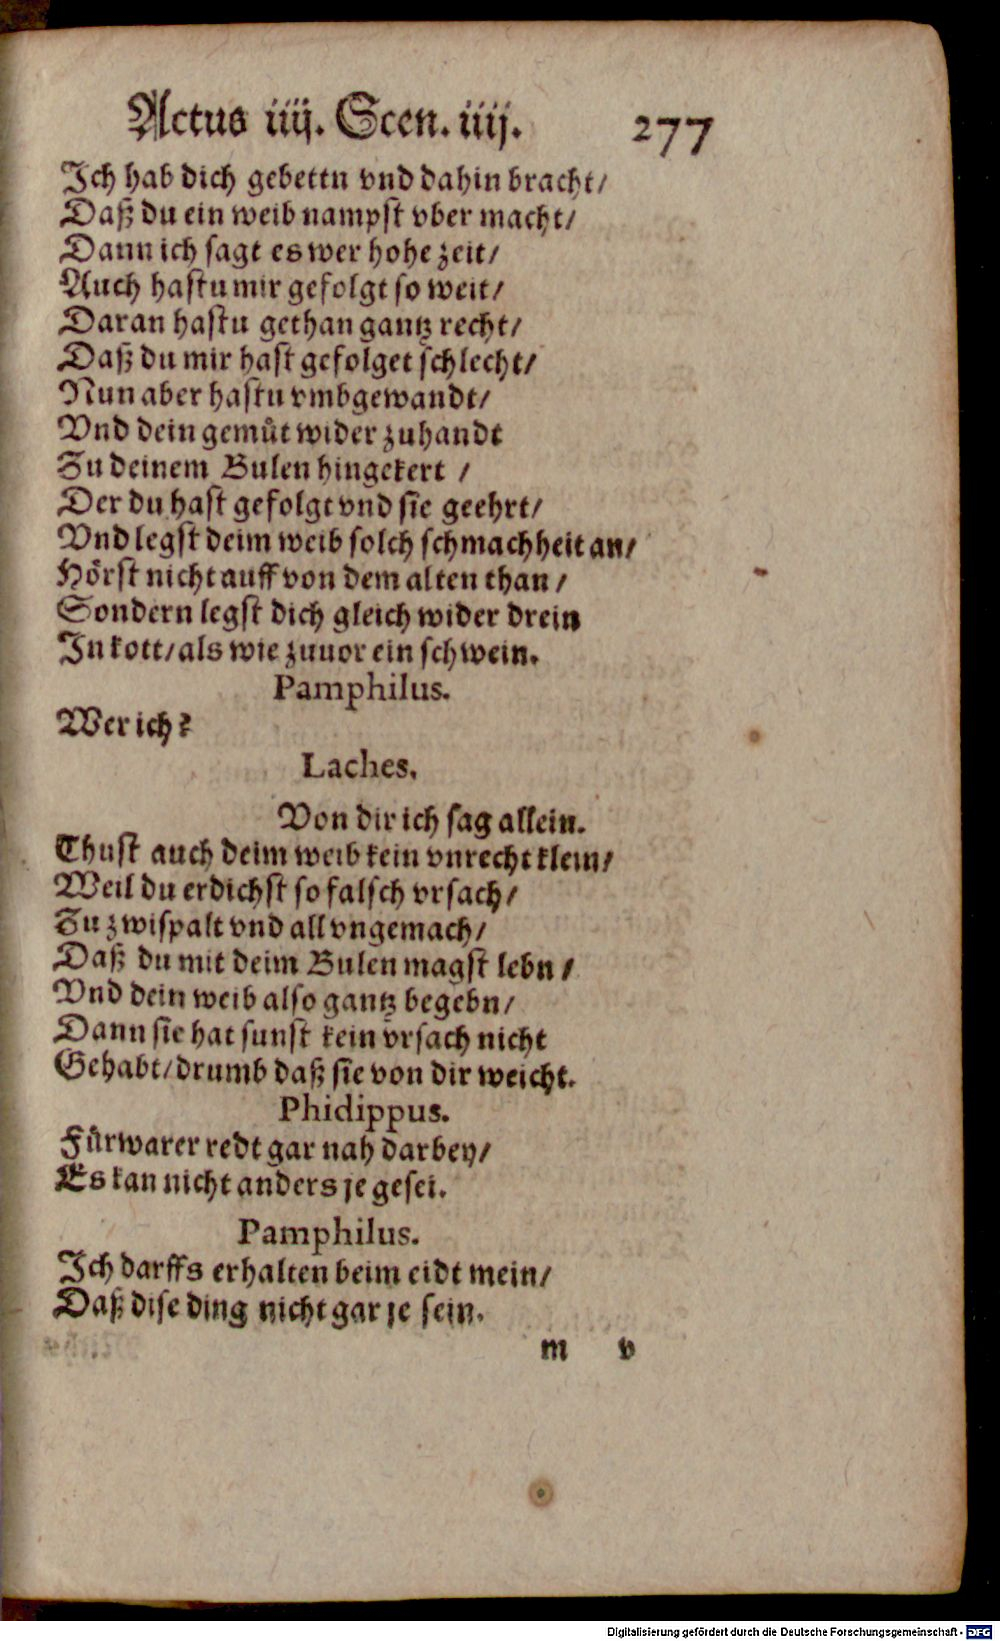 Actus iiij. Scen. iiij. 277
Ich hab dich gebettn vnd dahin bracht/
Daß du ein weib nampst vber macht/
Dann ich sagt es wer hohe zeit/
Auch hastu mir gefolgt so weit/
Daran hastu gethan gantz recht/
Daß du mir hast gefolget schlecht/
Nun aber hastu vmbgewandt/
Vnd dein gemüt wider zuhandt
Zu deinem Bulen hingekert /
Der du hast gefolgt vnd sie geehrt/
Vnd legst deim weib solch schmachheit an/
Hörst nicht auff von dem alten than /
Sondern legst dich gleich wider drein
In kott/als wie zuuor ein schwein.
Pamphilus.
Wer ich?
Laches.
Von dir ich sag allein.
Thust auch deim weib kein vnrecht klein/
Weil du erdichst so falsch vrsach/
Zu zwispalt vnd all vngemach/
Daß du mit deim Bulen magst lebn /
Vnd dein weib also gantz begebn/
Dann sie hat sunst kein vrsach nicht
Gehabt/drumb daß sie von dir weicht.
Phidippus.
Fürwar er redt gar nah darbey/
Es kan nicht anders je gesei.
Pamphilus.
Ich darffs erhalten beim eidt mein/
Daß dise ding nicht gar je sein.
m v
Digitalisierung gefördert durch die Deutsche Forschungsgemeinschaft - DFG